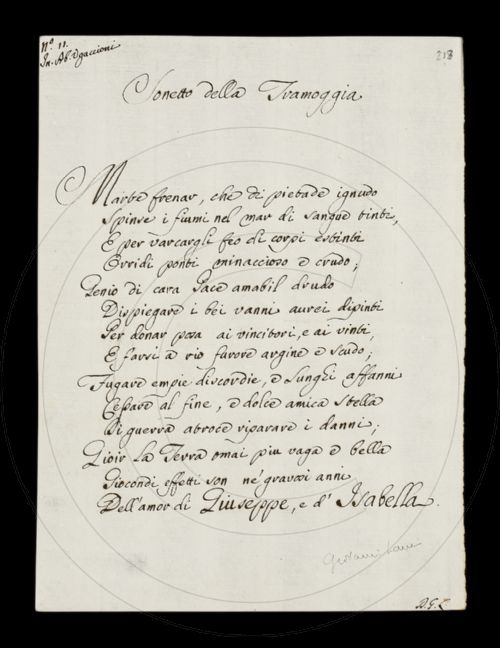 N.º 11.
In. Ab. Ugaccioni
213
Sonetto della Tramoggia
Marte frenar, che di pietade ignudo
Spinse i fiumi nel mar di sangue tinti,
E per varcargli feo di corpi estinti
Orridi ponti minaccioso e crudo;
Genio di cara Pace amabil drudo
Dispiegare i bei vanni aurei dipinti
Per donar posa ai vincitori, e ai vinti,
E farsi a rio furore argine e scudo;
Fugare empie discordie, e lunghi affanni
Cessare al fine, e dolce amica stella
Di guerra atroce riparare i danni;
Gioir la Terra omai piu vaga e bella
Giocondi effetti son ne' gravosi anni
Dell'amor di Giuseppe, e d' Isabella.